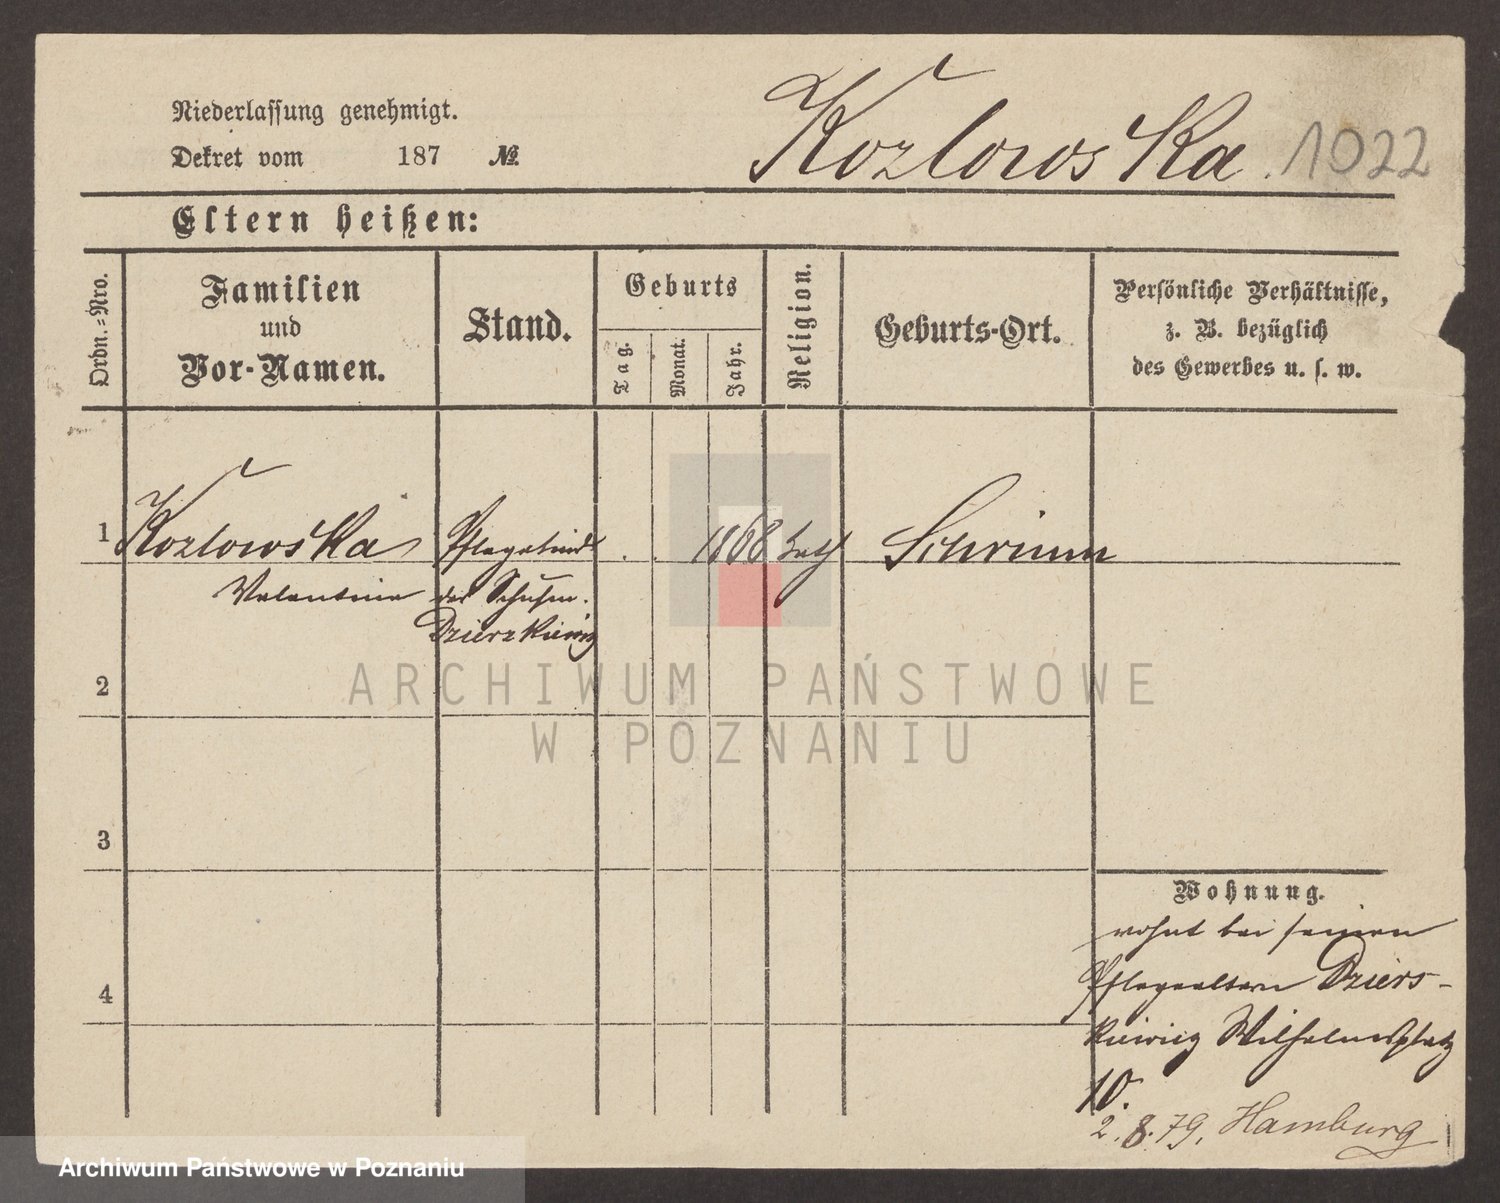 Niederlassung genehmigt.
Dekret vom 187 №
Kozlowska 1022
Eltern heißen:
Ordn.=Nro.
Familien
und
Vor-Namen.
Stand.
Geburts
Tag.
Monat.
Jahr.
Religion.
Geburts-Ort.
Persönliche Verhältnisse,
z. B. bezüglich
des Gewerbes u. s. w.
1 Kozlowska Pflegekind 1868 kath Schrimm
Valentine des Schuhm.
Dzierzkiewicz
2
3
4
Wohnung.
wohnt bei seinen
Pflegeeltern Dziers-
kiewicz Wilhelmsplatz
10.
2. 8. 79. Hamburg
ARCHIWUM PAŃSTWOWE
W POZNANIU
Archiwum Państwowe w Poznaniu